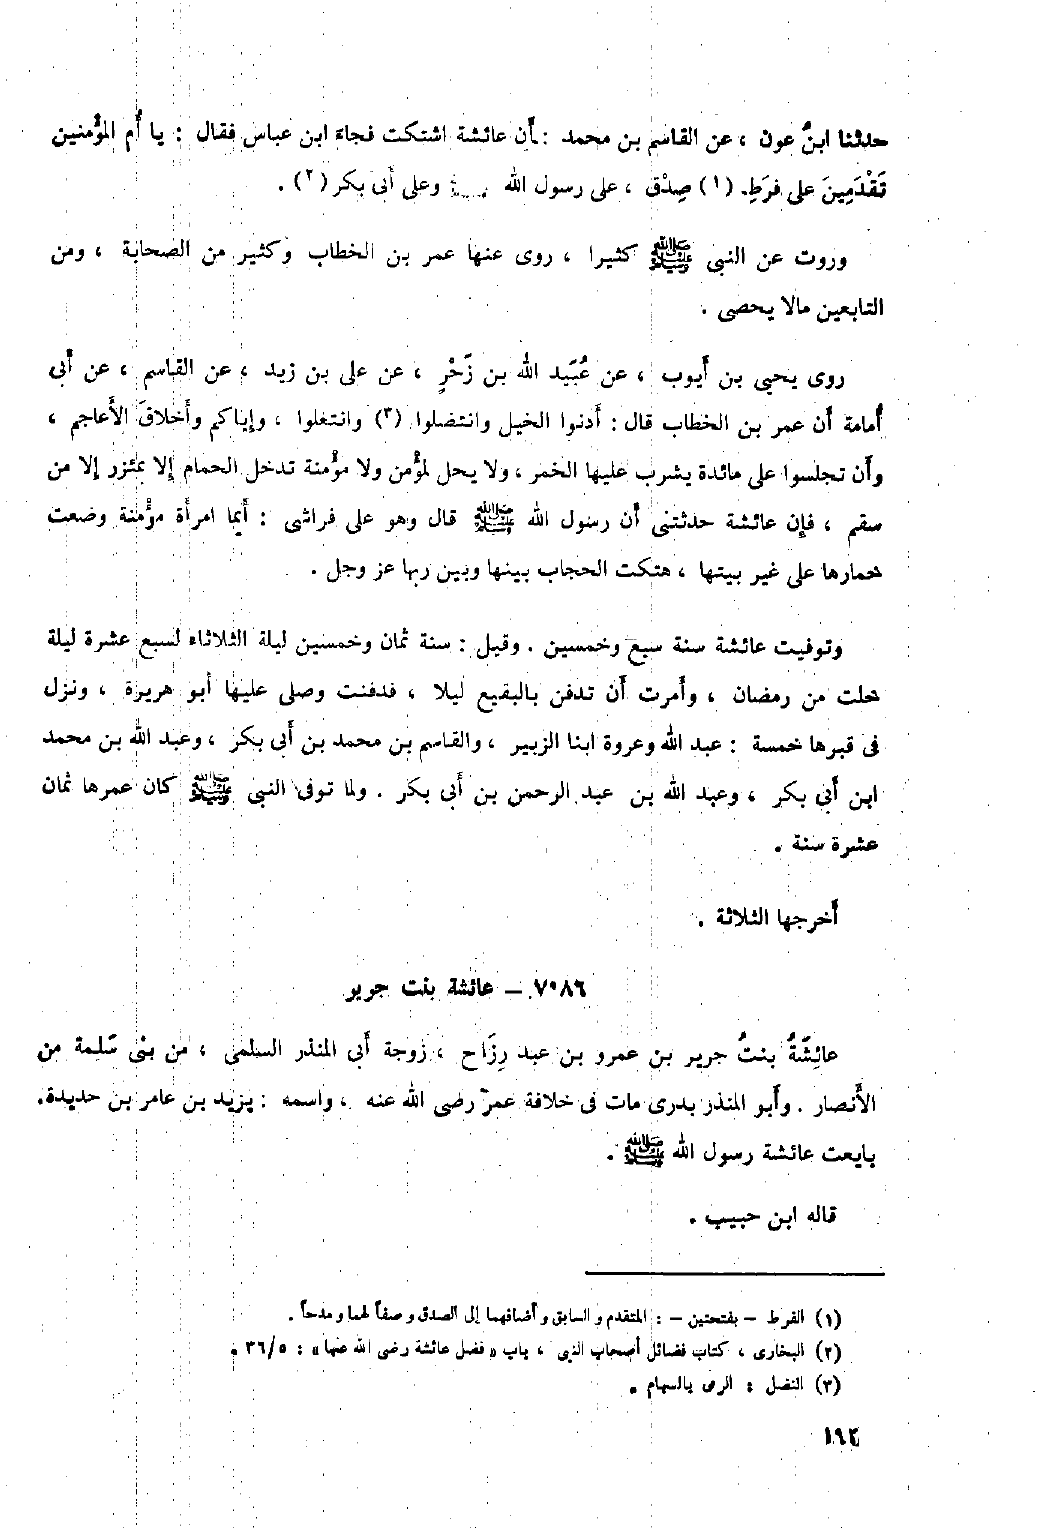 حدثنا ابنُ عون ، عن القاسم بن محمد : أن عائشة اشتكت فجاءَ ابن عباس فقال : يا أُم المؤمنين
تَقْدَمِينَ على فرَطِ (١) صِدْق ، على رسول الله وعلى أبى بكر (٢) .
وروت عن النبى ﷺ كثيرا ، روى عنها عمر بن الخطاب وكثير من الصحابة ، ومن
التابعين مالا يحصى .
روى يحيى بن أيوب ، عن عُبَيد الله بن زَحْرٍ ، عن على بن زيد ، عن القاسم ، عن أبى
أُمامة أن عمر بن الخطاب قال : أدنوا الخيل وانتضلوا (٣) وانتعلوا ، وإياكم وأخلاقَ الأَعاجم ،
وأن تجلسوا على مائدة يشرب عليها الخمر ، ولا يحل لمؤمن ولا مؤمنة تدخل الحمام إلا بمئزر إلا من
سقم ، فإن عائشة حدثتنى أن رسول الله ﷺ قال وهو على فراشى : أيما امرأة مؤمنة وضعت
خمارها على غير بيتها ، هتكت الحجاب بينها وبين ربها عز وجل .
وتوفيت عائشة سنة سبع وخمسين . وقيل : سنة ثمان وخمسين ليلة الثلاثاء لسبع عشرة ليلة
خلت من رمضان ، وأمرت أن تدفن بالبقيع ليلا ، فدفنت وصلى عليها أبو هريرة ، ونزل
فى قبرها خمسة : عبد الله وعروة ابنا الزبير ، والقاسم بن محمد بن أبى بكر ، وعبد الله بن محمد
ابن أبى بكر ، وعبد الله بن عبد الرحمن بن أبى بكر . ولما توفى النبى ﷺ كان عمرها ثمان
عشرة سنة .
أخرجها الثلاثة .
٧٠٨٦ – عائشة بنت جرير
عائِشَةُ بنتُ جرير بن عمرو بن عبد رِزَاح ، زوجة أبى المنذر السلمى ، من بنى سَلمة من
الأنصار . وأبو المنذر بدرى مات فى خلافة عمر رضى الله عنه ، واسمه : يزيد بن عامر بن حديدة.
بايعت عائشة رسول الله ﷺ .
قاله ابن حبيب .
(١) الفرط – بفتحتين – : المتقدم والسابق وأضافهما إلى الصدق وصفاً لهما ومدحاً .
(٢) البخارى ، كتاب فضائل أصحاب النبى ، باب « فضل عائشة رضى الله عنها » : ٣٦/٥ .
(٣) النضل : الرمى بالسهام .
١٩٢